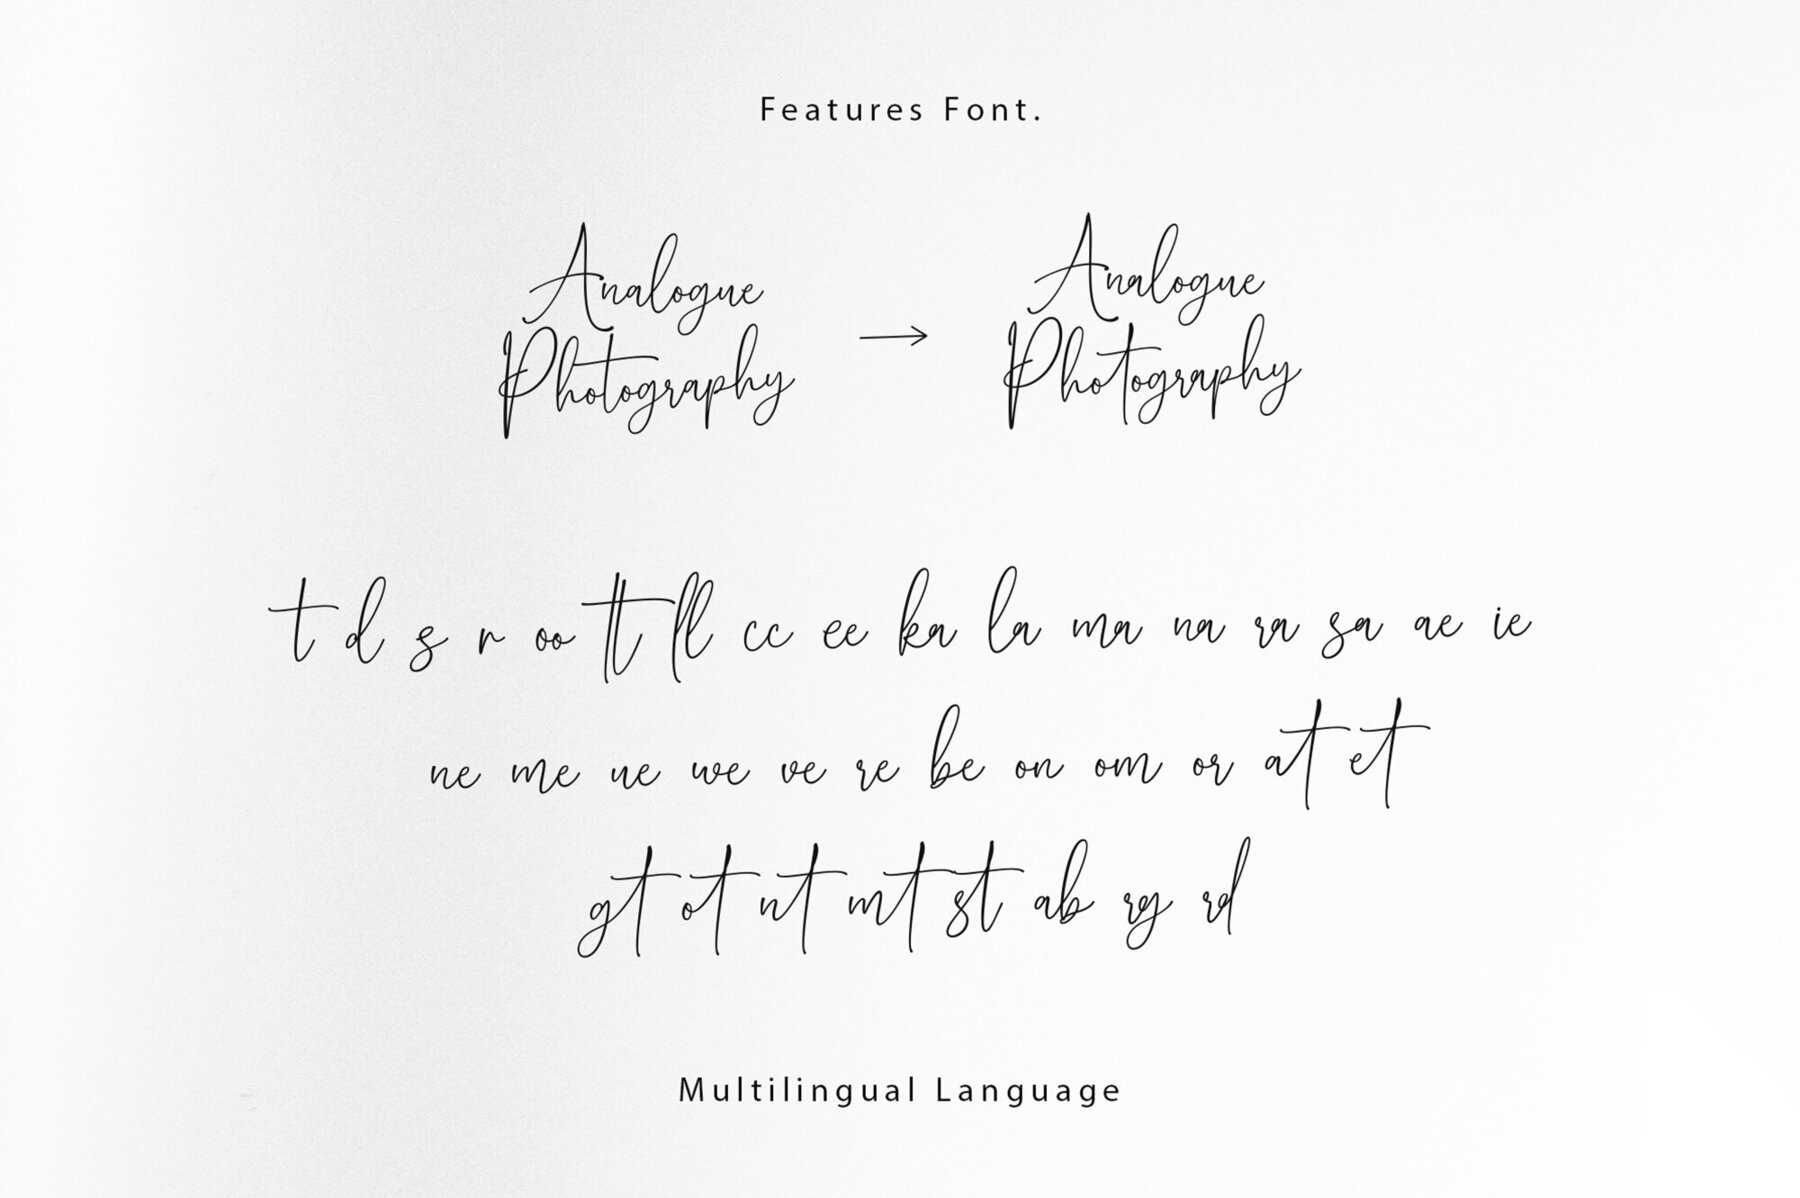 Features Font.
Analogue
Photography
→
Analogue
Photography
t d s r oo tt ll cc ee ka la ma na ra sa ae ie
ne me ue we ve re be on om or at et
gt ot nt mt st ab rg rd
Multilingual Language